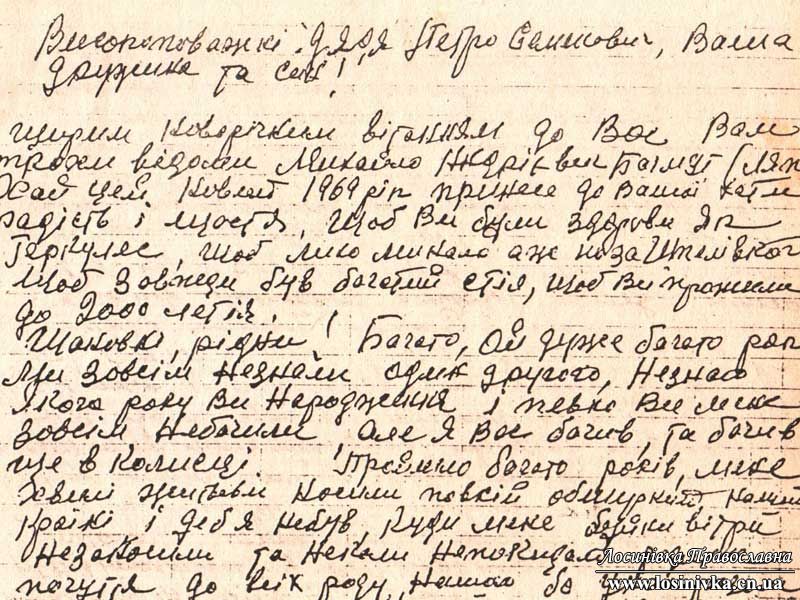 Високоповажні: дядя Петро Семинович, Ваша
дружина та сем!
щирим новорічним вітанням до Вас Вам
трохи відоми Михайло
Хай цей новий 1969 ріп принесе до Вашої хати
радість і щостя, щоб Ви були здорови яп
Геркулес, щоб лихо минало аж
щоб зовжди був богатий стіл, щоб Ви прожили
до 2000 летія!
Шановні, рідни! Багато, ой дуже багато роп
ми зовсім незнали один другого, незнаю
якого року Ви народження і певно Ви мене
зовсім небочили але я Вас бачив, та бачив
ще в колисці. Пройшло богато років, мене
хвилі життьви носили по всій обширній нашій
країні і де б я небув, куди мене буйни вітри
незаносили та николи непокидало
почуття до всіх роду, нашого бо
Лосинівка Православна
www.losinivka.cn.ua